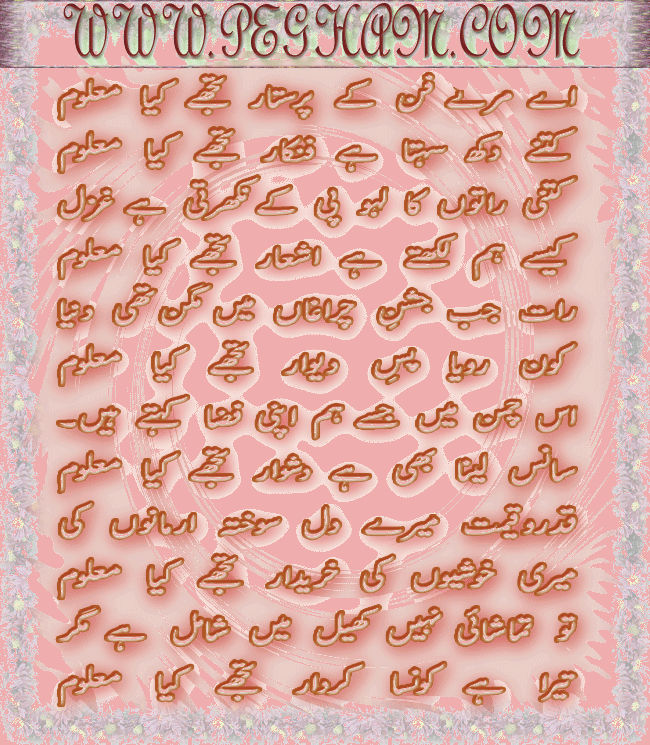 WWW.PEGHAM.COM
اے مرے فن کے پرستار تجھے کیا معلوم
کتنے دکھ سہتا ہے فنکار تجھے کیا معلوم
کتنی راتوں کا لہو پی کے نکھرتی ہے غزل
کیسے ہم لکھتے ہے اشعار تجھے کیا معلوم
رات جب جشنِ چراغاں میں مگن تھی دنیا
کون رویا پسِ دیوار تجھے کیا معلوم
اس چمن میں جسے ہم اپنی فضا کہتے ہیں۔
سانس لینا بھی ہے دشوار تجھے کیا معلوم
قدروقیمت میرے دل سوختہ ارمانوں کی
میری خوشیوں کی خریدار تجھے کیا معلوم
تو تماشائی نہیں کھیل میں شامل ہے مگر
تیرا ہے کونسا کردار تجھے کیا معلوم